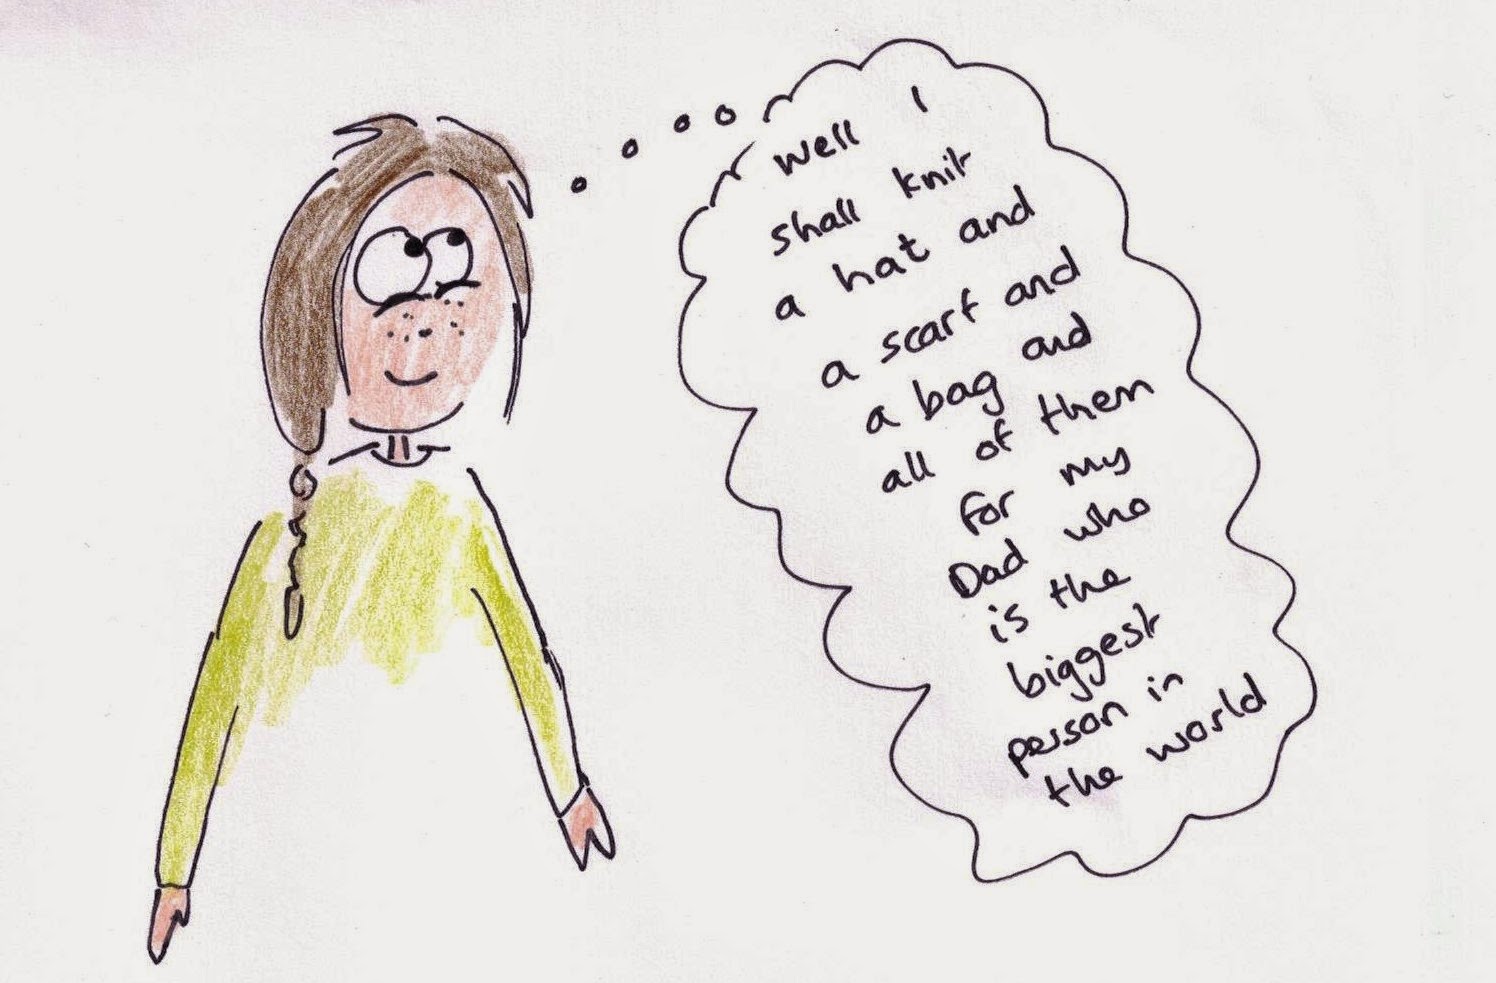 well I
shall knit
a hat and
a scarf and
a bag and
all of them
for my
Dad who
is the
biggest
person in
the world